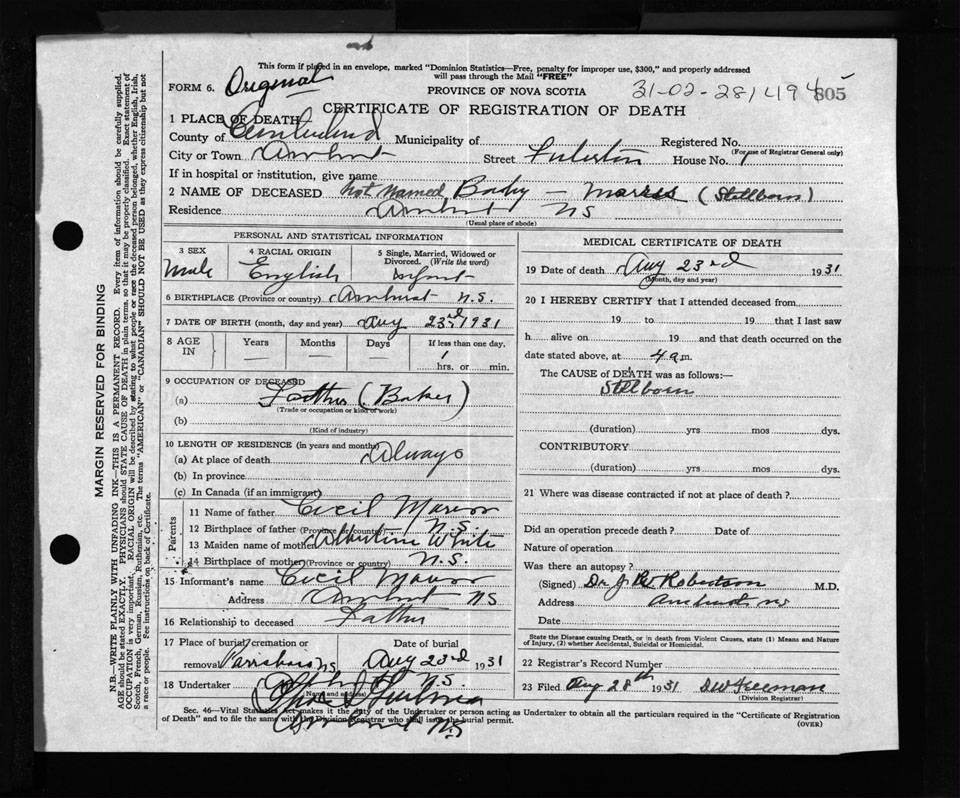 This form if placed in an envelope, marked "Dominion Statistics—Free, penalty for improper use, $300," and properly addressed
will pass through the Mail "FREE"
FORM 6. Original
PROVINCE OF NOVA SCOTIA 31-02-281494 805
CERTIFICATE OF REGISTRATION OF DEATH
1 PLACE OF DEATH
County of Cumberland Municipality of Registered No.
(For use of Registrar General only)
City or Town Amherst Street Fulerton House No. 1
If in hospital or institution, give name
2 NAME OF DECEASED Not Named Baby — (Stillborn)
Residence Amherst NS
(Usual place of abode)
PERSONAL AND STATISTICAL INFORMATION
3 SEX 4 RACIAL ORIGIN 5 Single, Married, Widowed or
Divorced. (Write the word)
Male English Infant
6 BIRTHPLACE (Province or country) Amherst N.S.
7 DATE OF BIRTH (month, day and year) Aug 23rd 1931
8 AGE IN Years Months Days If less than one day,
— — — 1
hrs. or min.
9 OCCUPATION OF DECEASED
(a) Father (Baker)
(Trade or occupation or kind of work)
(b)
(Kind of industry)
10 LENGTH OF RESIDENCE (in years and months)
(a) At place of death Always
(b) In province
(c) In Canada (if an immigrant)
Parents
11 Name of father Cecil
12 Birthplace of father (Province or country) N.S.
13 Maiden name of mother Albertine White
14 Birthplace of mother (Province or country) N.S.
15 Informant's name Cecil
Address Amherst NS
16 Relationship to deceased Father
17 Place of burial, cremation or Date of burial
removal Parrsboro NS Aug 23rd 1931
18 Undertaker N.S.
(Name and address)
Amherst NS
MEDICAL CERTIFICATE OF DEATH
19 Date of death Aug 23rd 1931
(Month, day and year)
20 I HEREBY CERTIFY that I attended deceased from
19 to 19 that I last saw
h alive on 19 and that death occurred on the
date stated above, at 4 am.
The CAUSE of DEATH was as follows:—
Stillborn
(duration) yrs mos dys.
CONTRIBUTORY
(duration) yrs mos dys.
21 Where was disease contracted if not at place of death?
Did an operation precede death? Date of
Nature of operation
Was there an autopsy?
(Signed) Dr. Robertson M.D.
Address Amherst NS
Date
State the Disease causing Death, or in death from Violent Causes, state (1) Means and Nature
of Injury, (2) whether Accidental, Suicidal or Homicidal.
22 Registrar's Record Number
23 Filed Aug 28th 1931 Freeman
(Division Registrar)
Sec. 46—Vital Statistics Act makes it the duty of the Undertaker or person acting as Undertaker to obtain all the particulars required in the "Certificate of Registration
of Death" and to file the same with the Division Registrar who shall issue the burial permit.
(OVER)
MARGIN RESERVED FOR BINDING
N.B.—WRITE PLAINLY WITH UNFADING INK—THIS IS A PERMANENT RECORD. Every item of information should be carefully supplied.
AGE should be stated EXACTLY. PHYSICIANS should STATE CAUSE OF DEATH in plain terms, so that it may be properly classified. Exact statement of
OCCUPATION is very important. RACIAL ORIGIN will be described by stating to what people or race the deceased person belonged, whether English, Irish,
Scotch, French, German, Russian, Ruthenian, etc. The terms "AMERICAN" or "CANADIAN" SHOULD NOT BE USED as they express citizenship but not
a race or people. See instructions on back of Certificate.